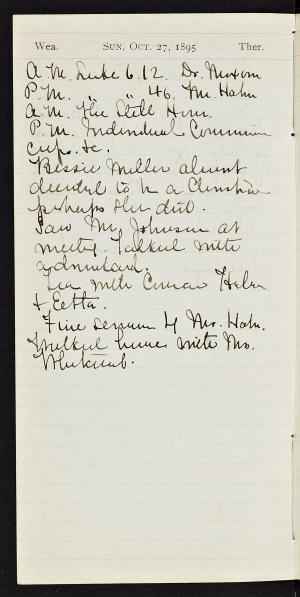 Wea. SUN. OCT. 27, 1895 Ther.
A.M. Luke 6.12. Dr. Moxom
P.M. " " 46. Mr. Hahn
A.M. The Still Hour.
P.M. Individual Communion
cups. &c.
Bessie Miller almost
decided to be a Christian
perhaps she did.
Saw Mr. Johnson at
meeting. Talked with
Tea with Helen
& Etta.
Fine sermon by Mr. Hahn.
Walked home with Mr.